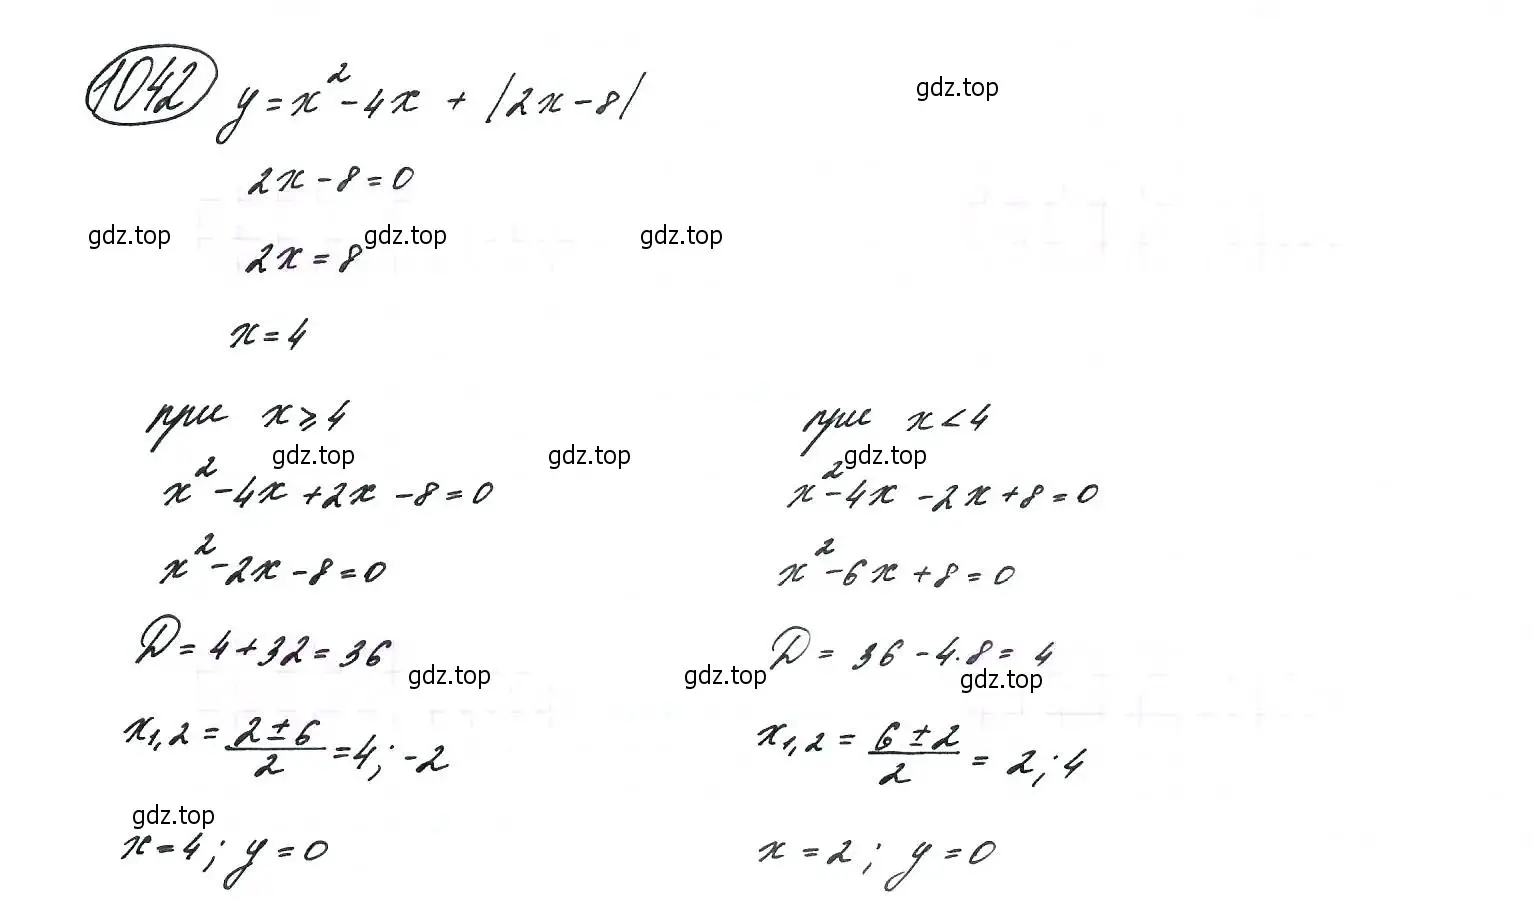 1042 y = x² - 4x + |2x - 8|
gdz.top
2x - 8 = 0
gdz.top gdz.top gdz.top
2x = 8
x = 4
при x ⩾ 4
при x < 4
gdz.top gdz.top gdz.top
x² - 4x + 2x - 8 = 0
x² - 4x - 2x + 8 = 0
x² - 2x - 8 = 0
x² - 6x + 8 = 0
D = 4 + 32 = 36
D = 36 - 4·8 = 4
gdz.top gdz.top gdz.top
x₁,₂ = (2 ± 6)/2 = 4; -2
x₁,₂ = (6 ± 2)/2 = 2; 4
gdz.top
x = 4; y = 0
x = 2; y = 0